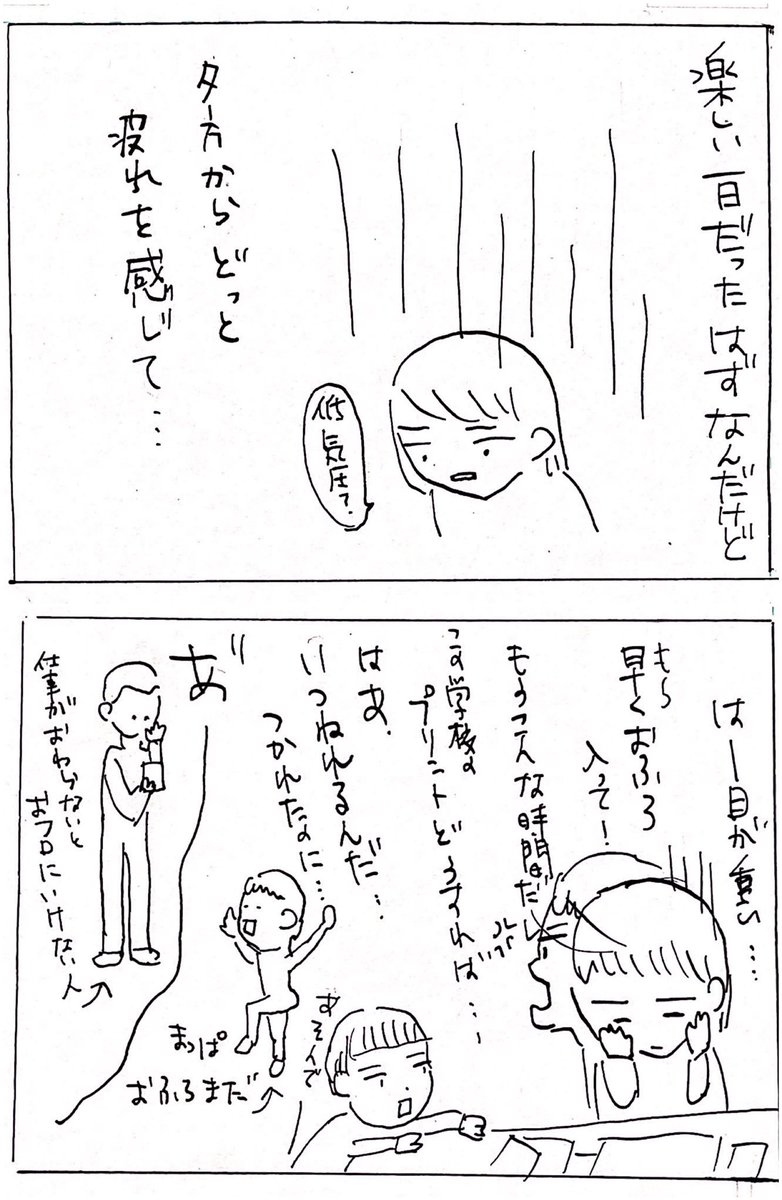 楽しい一日だったはずなんだけど
低気圧?
夕方からどっと
疲れを感じて…
はー目が重い…
もう
早くおふろ
入って!
もうこんな時間だし
この学校の
プリントどうすれば…
はぁ
いつねれるんだ…
つかれたのに…
あそんで
まっぱ
おふろまだ
あ゛
仕事がおわらないと
おフロにいけない人